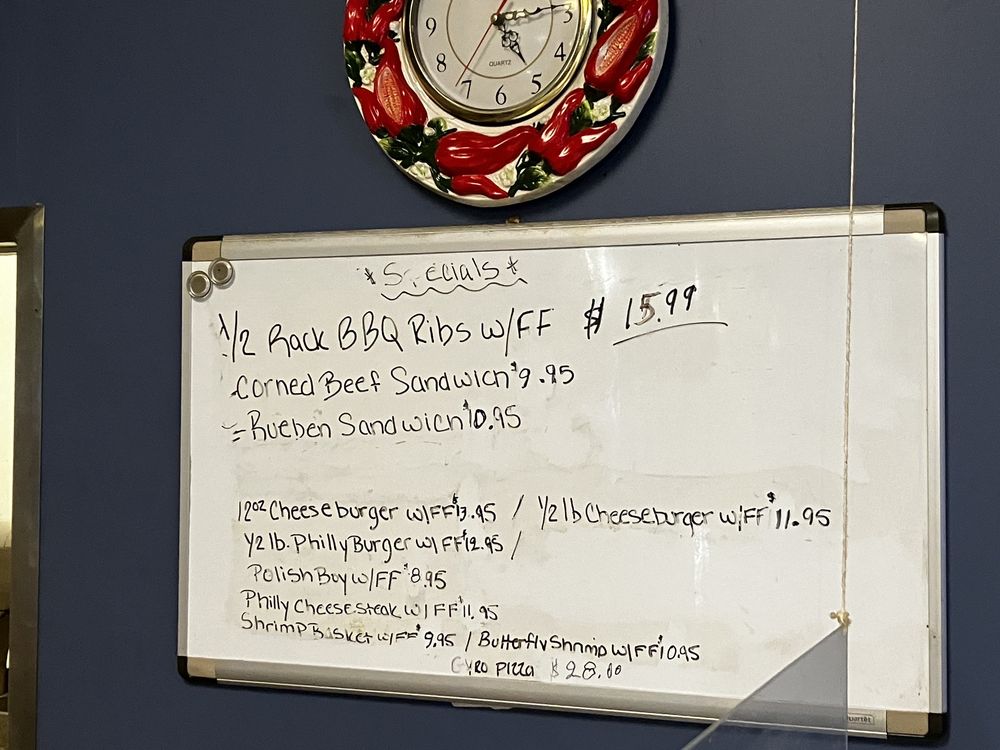 9 3
8 4
QUARTZ
7 6 5
* Specials *
1/2 Rack BBQ Ribs w/FF $ 15.99
Corned Beef Sandwich $9.95
Rueben Sandwich $10.95
12oz Cheeseburger w/FF $13.95 / 1/2 lb Cheeseburger w/FF $11.95
1/2 lb. Philly Burger w/ FF $12.95 /
Polish Boy w/FF $8.95
Philly Cheesesteak w/FF $11.95
Shrimp Basket w/FF $9.95 / Butterfly Shrimp w/FF $10.95
Gyro Pizza $28.00
Quartet